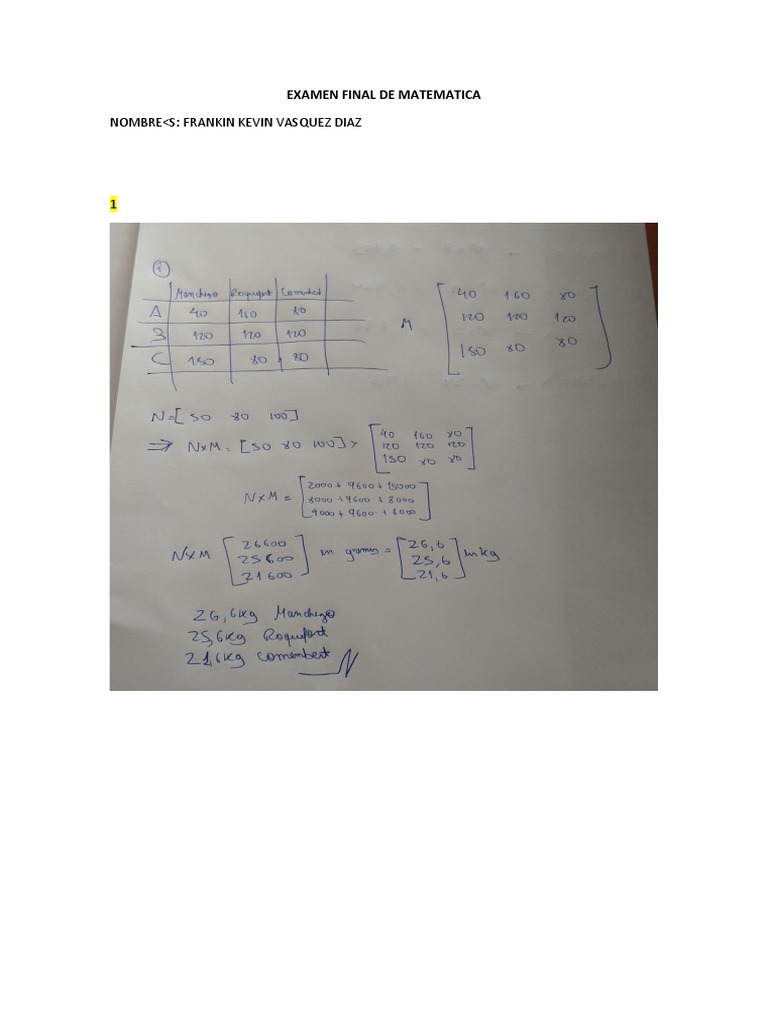 EXAMEN FINAL DE MATEMATICA
NOMBRE<S: FRANKIN KEVIN VASQUEZ DIAZ
1
①
Manchego Roquefort
A 40 160 80
B 120 120 120
C 150 80 80
M [ 40 160 80
120 120 120
150 80 80 ]
N=[ 50 80 100]
⇒ N×M = [50 80 100] × [ 40 160 80
120 120 120
150 80 80 ]
N×M = [ 2000 + 9600 + 15000
8000 + 9600 + 8000
4000 + 9600 + 8000 ]
N×M [ 26600
25600
21600 ] en gramos = [ 26,6
25,6
21,6 ] en kg
26,6kg Manchego
25,6kg Roquefort
21,6kg Comembert